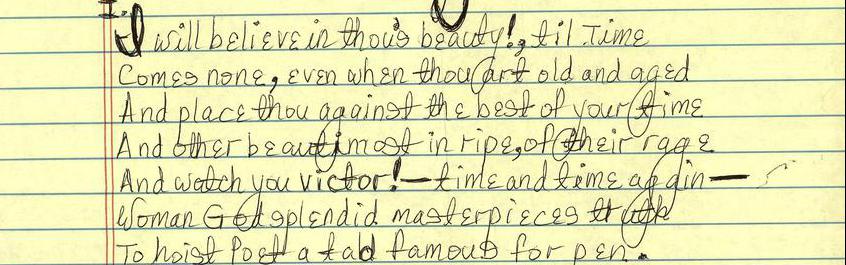 I will believe in thou's beauty!, til Time
Comes none, even when thou art old and aged
And place thou against the best of your time
And other beauti most in ripe, of their rage
And watch you victor! — time and time again —
Woman God splendid masterpieces
To hoist Poet a tad famous for pen.